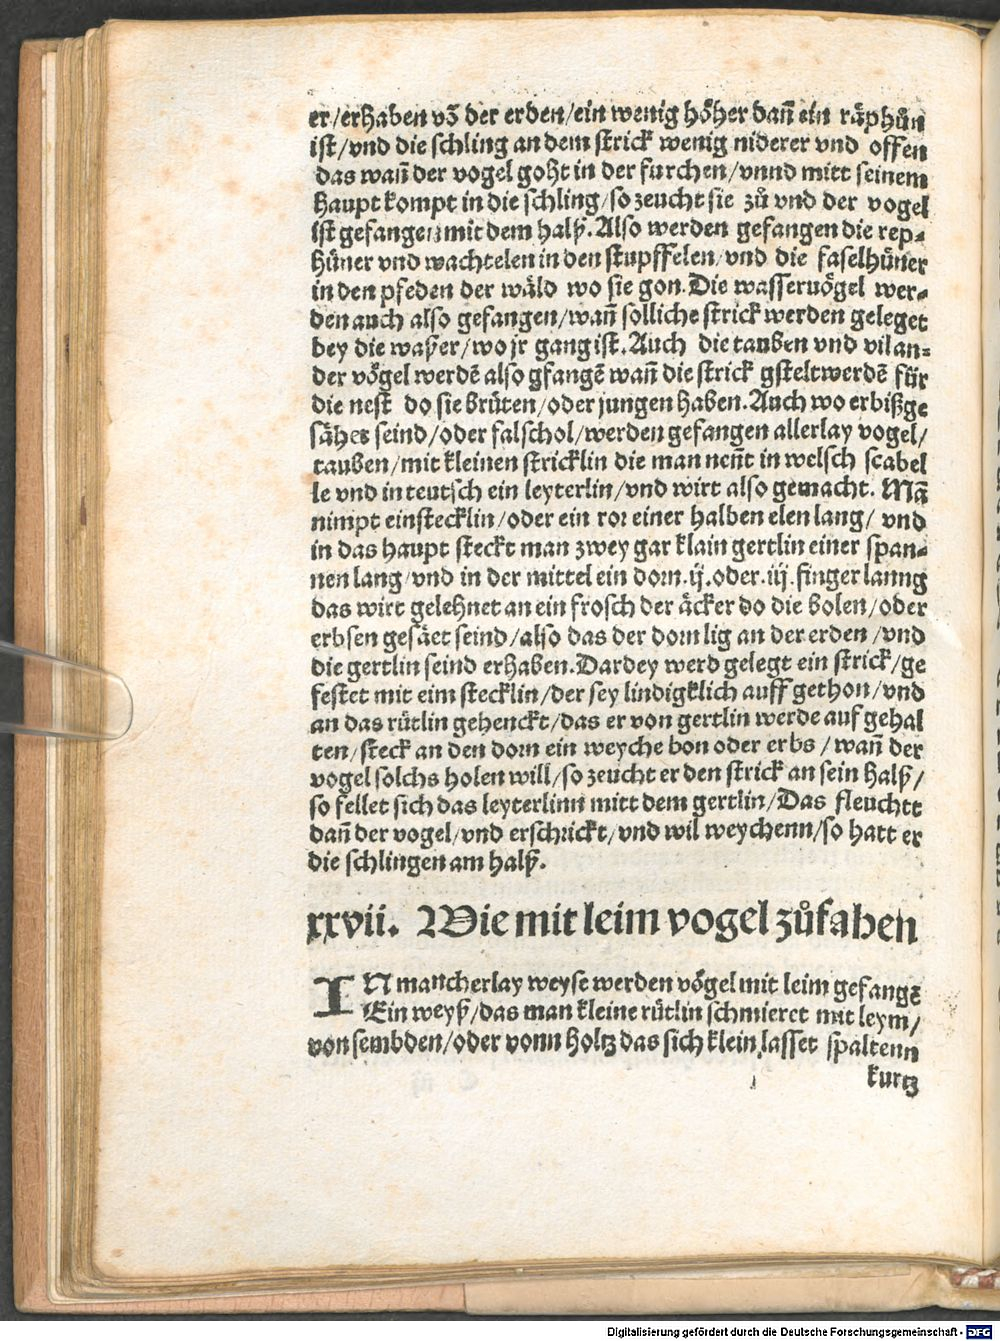 er/erhaben vō der erden/ein wenig höher dañ ein räphůn
ist/vnd die schling an dem strick wenig niderer vnd offen
das wañ der vogel goht in der furchen/vnnd mitt seinem
haupt kompt in die schling/so zeucht sie zů vnd der vogel
ist gefangen mit dem halß. Also werden gefangen die rep-
hüner vnd wachtelen in den stupffelen/vnd die faselhüner
in den pfeden der wäld wo sie gon. Die wasseruögel wer-
den auch also gefangen/wañ solliche strick werden geleget
bey die waßer/wo jr gang ist. Auch die tauben vnd vil an-
der vögel werdē also gfangē wañ die strick gstelt werdē für
die nest do sie brüten/oder jungen haben. Auch wo erbißge
sähet seind/oder falschol/werden gefangen allerlay vogel/
tauben/mit kleinen stricklin die man neñt in welsch scabel
le vnd in teutsch ein leyterlin/vnd wirt also gemacht. Mā
nimpt ein stecklin/oder ein ror einer halben elen lang/ vnd
in das haupt steckt man zwey gar klain gertlin einer span-
nen lang/vnd in der mittel ein dorn .ij. oder .iij. finger lanng
das wirt gelehnet an ein frosch der äcker do die bolen/oder
erbsen gesäet seind/also das der dorn lig an der erden /vnd
die gertlin seind erhaben. Darbey werd gelegt ein strick/ge
festet mit eim stecklin/der sey lindigklich auff gethon/vnd
an das rütlin gehenckt/das er von gertlin werde auf gehal
ten/steck an den dorn ein weyche bon oder erbs / wañ der
vogel solchs holen will/so zeucht er den strick an sein halß/
so fellet sich das leyterlinn mitt dem gertlin/Das fleuchtt
dañ der vogel/vnd erschrickt/vnd wil weychenn/so hatt er
die schlingen am halß.
xxvii. Wie mit leim vogel zůfahen
IN mancherlay weyse werden vögel mit leim gefangē
Ein weyß/das man kleine rütlin schmieret mit leym/
von sembden/oder vonn holtz das sich klein lasset spaltenn
kurtz
Digitalisierung gefördert durch die Deutsche Forschungsgemeinschaft - DFG